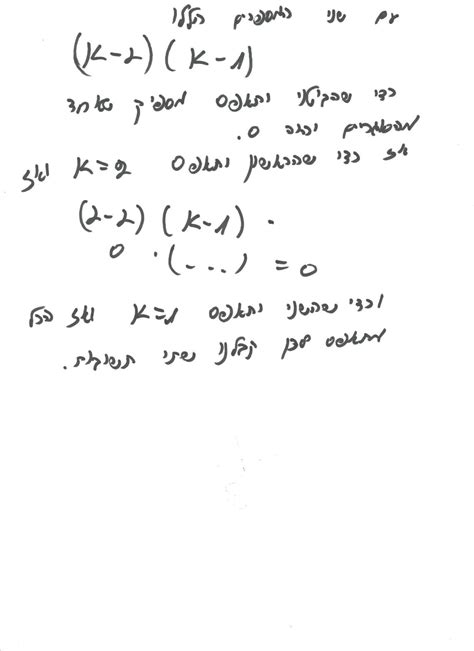 עם שני המספרים הללו
(K-2)(K-1)
כדי שהביטוי יתאפס מספיק שאחד
מהסוגריים יהיה 0.
אז כדי שהראשון יתאפס K=2 ואז
(2-2)(K-1).
0 · (...) = 0
וכדי שהשני יתאפס K=1 ואז הכל
מתאפס לכן קבלנו שתי תשובות.